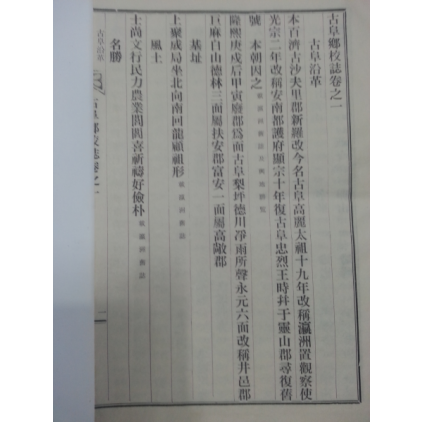 古阜鄕校誌卷之一
古阜沿革
本百濟古沙夫里郡新羅改今名古阜高麗太祖十九年改稱瀛洲置觀察使
光宗二年改稱安南都護府顯宗十年復古阜忠烈王時幷于靈山郡尋復舊
號 本朝因之
隆熙庚戌后甲寅廢郡爲面古阜梨坪德川淨雨所聲永元六面改稱井邑郡
巨麻自山德林三面屬扶安郡富安一面屬高敞郡
基址
上聚成局坐北向南回龍顧祖形
風土
士尙文行民力農業閭閻喜祈禱好儉朴
名勝
古阜沿革
古阜鄕校誌卷之一